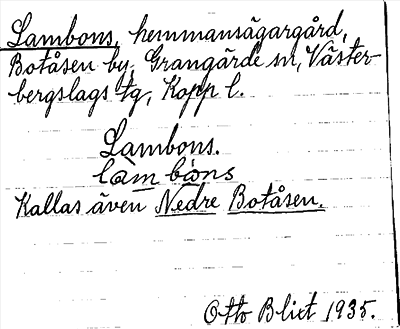 Lambons, hemmansägargård,
Botåsen by, Grangärde sn, Väster-
bergslags tg, Kopp l.
Lambons.
làm bòns
Kallas även Nedre Botåsen.
Otto Blixt 1935.